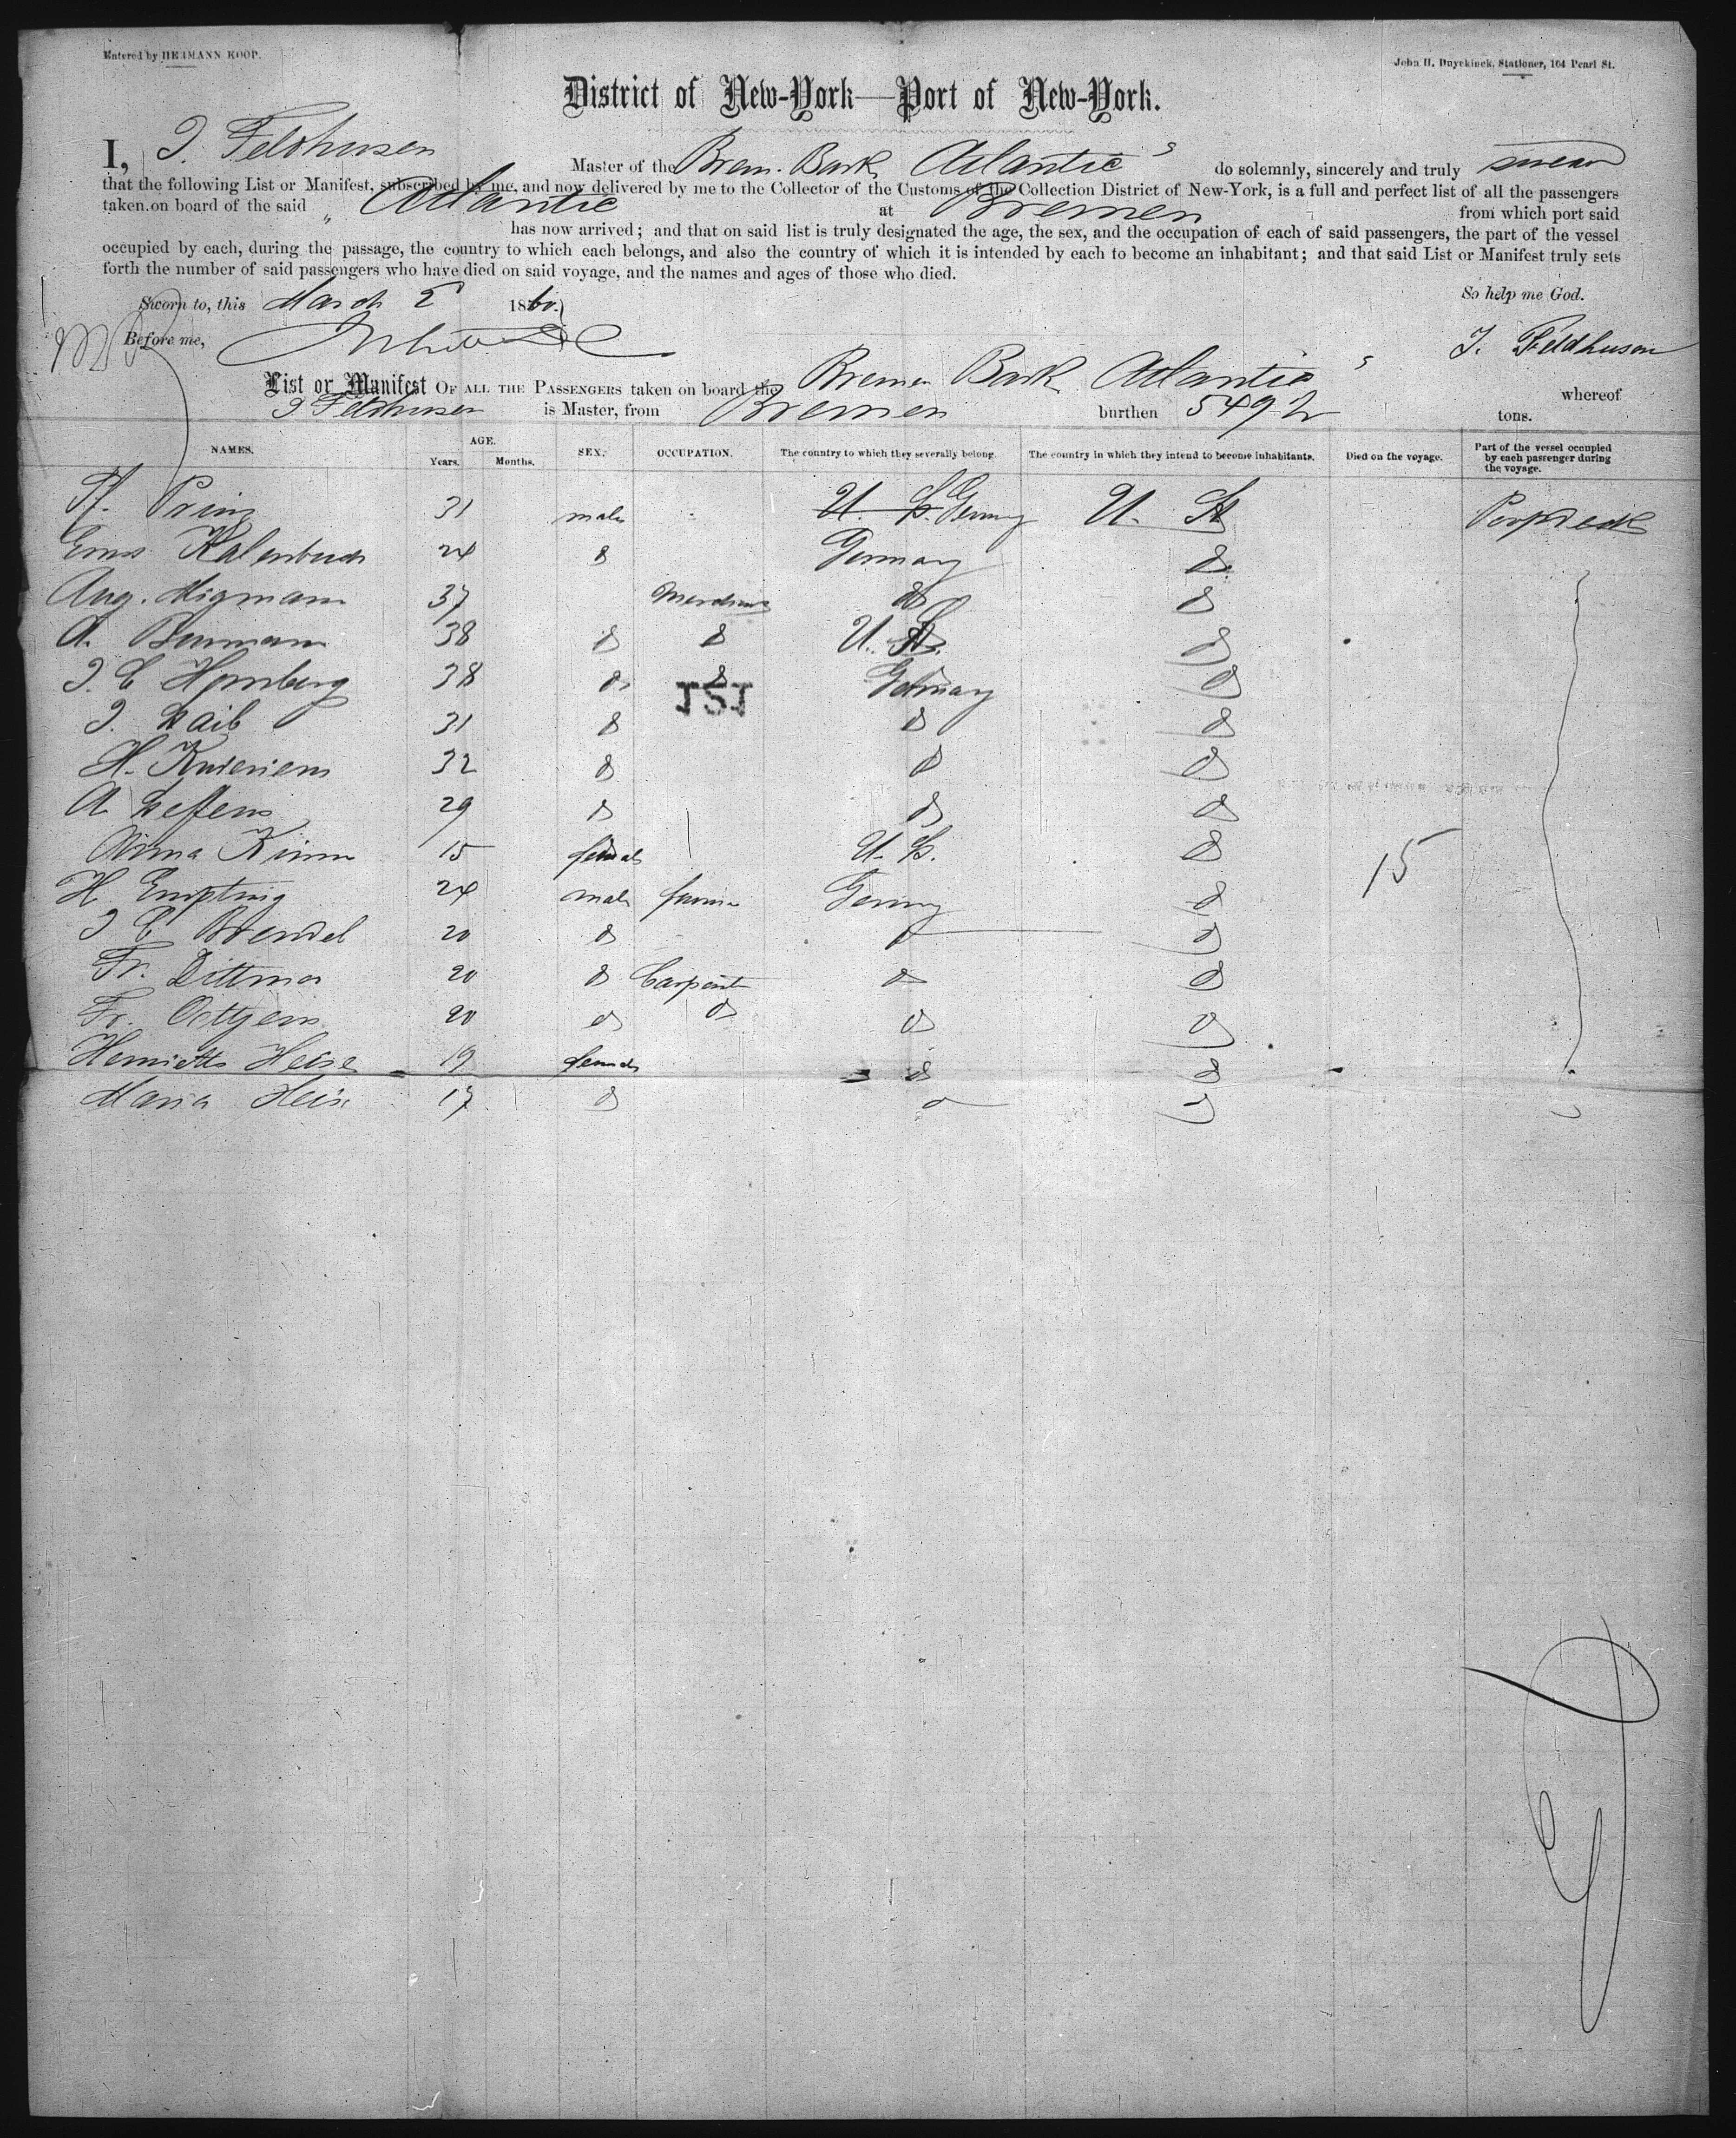 Entered by HERMANN KOOP.
John H. Duyckinck, Stationer, 164 Pearl St.
District of New-York—Port of New-York.
I, J. Feldhusen Master of the Brem. Bark Atlantic do solemnly, sincerely and truly swear
that the following List or Manifest, subscribed by me, and now delivered by me to the Collector of the Customs of the Collection District of New-York, is a full and perfect list of all the passengers
taken on board of the said Atlantic at Bremen from which port said
has now arrived; and that on said list is truly designated the age, the sex, and the occupation of each of said passengers, the part of the vessel
occupied by each, during the passage, the country to which each belongs, and also the country of which it is intended by each to become an inhabitant; and that said List or Manifest truly sets
forth the number of said passengers who have died on said voyage, and the names and ages of those who died.
Sworn to, this March 1860. So help me God.
Before me, J. Feldhusen
List or Manifest OF ALL THE PASSENGERS taken on board the Bremen Bark Atlantic whereof
J Feldhusen is Master, from Bremen burthen 549 1/2 tons.
NAMES. AGE. Years. Months. SEX. OCCUPATION. The country to which they severally belong. The country in which they intend to become inhabitants. Died on the voyage. Part of the vessel occupied by each passenger during the voyage.
Prinz 31 male U. S. Germy U. St
24 d Germany d
Aug. Migmann 37 d d
A. 38 d d U. St. d
J. C Hornberg 38 d d Germany d
121
J. Laib 31 d d d
H. Knieriem 32 d d d
A. 29 d d d
Anna 15 female U. S. d
15
H. 24 male Germy d
J C Brendel 20 d d d
Fr. Dittmer 20 d Carpent d d
Fr. Oltjens 20 d d d d
Henriette Heise 19 female d d
Maria Heise 17 d d d